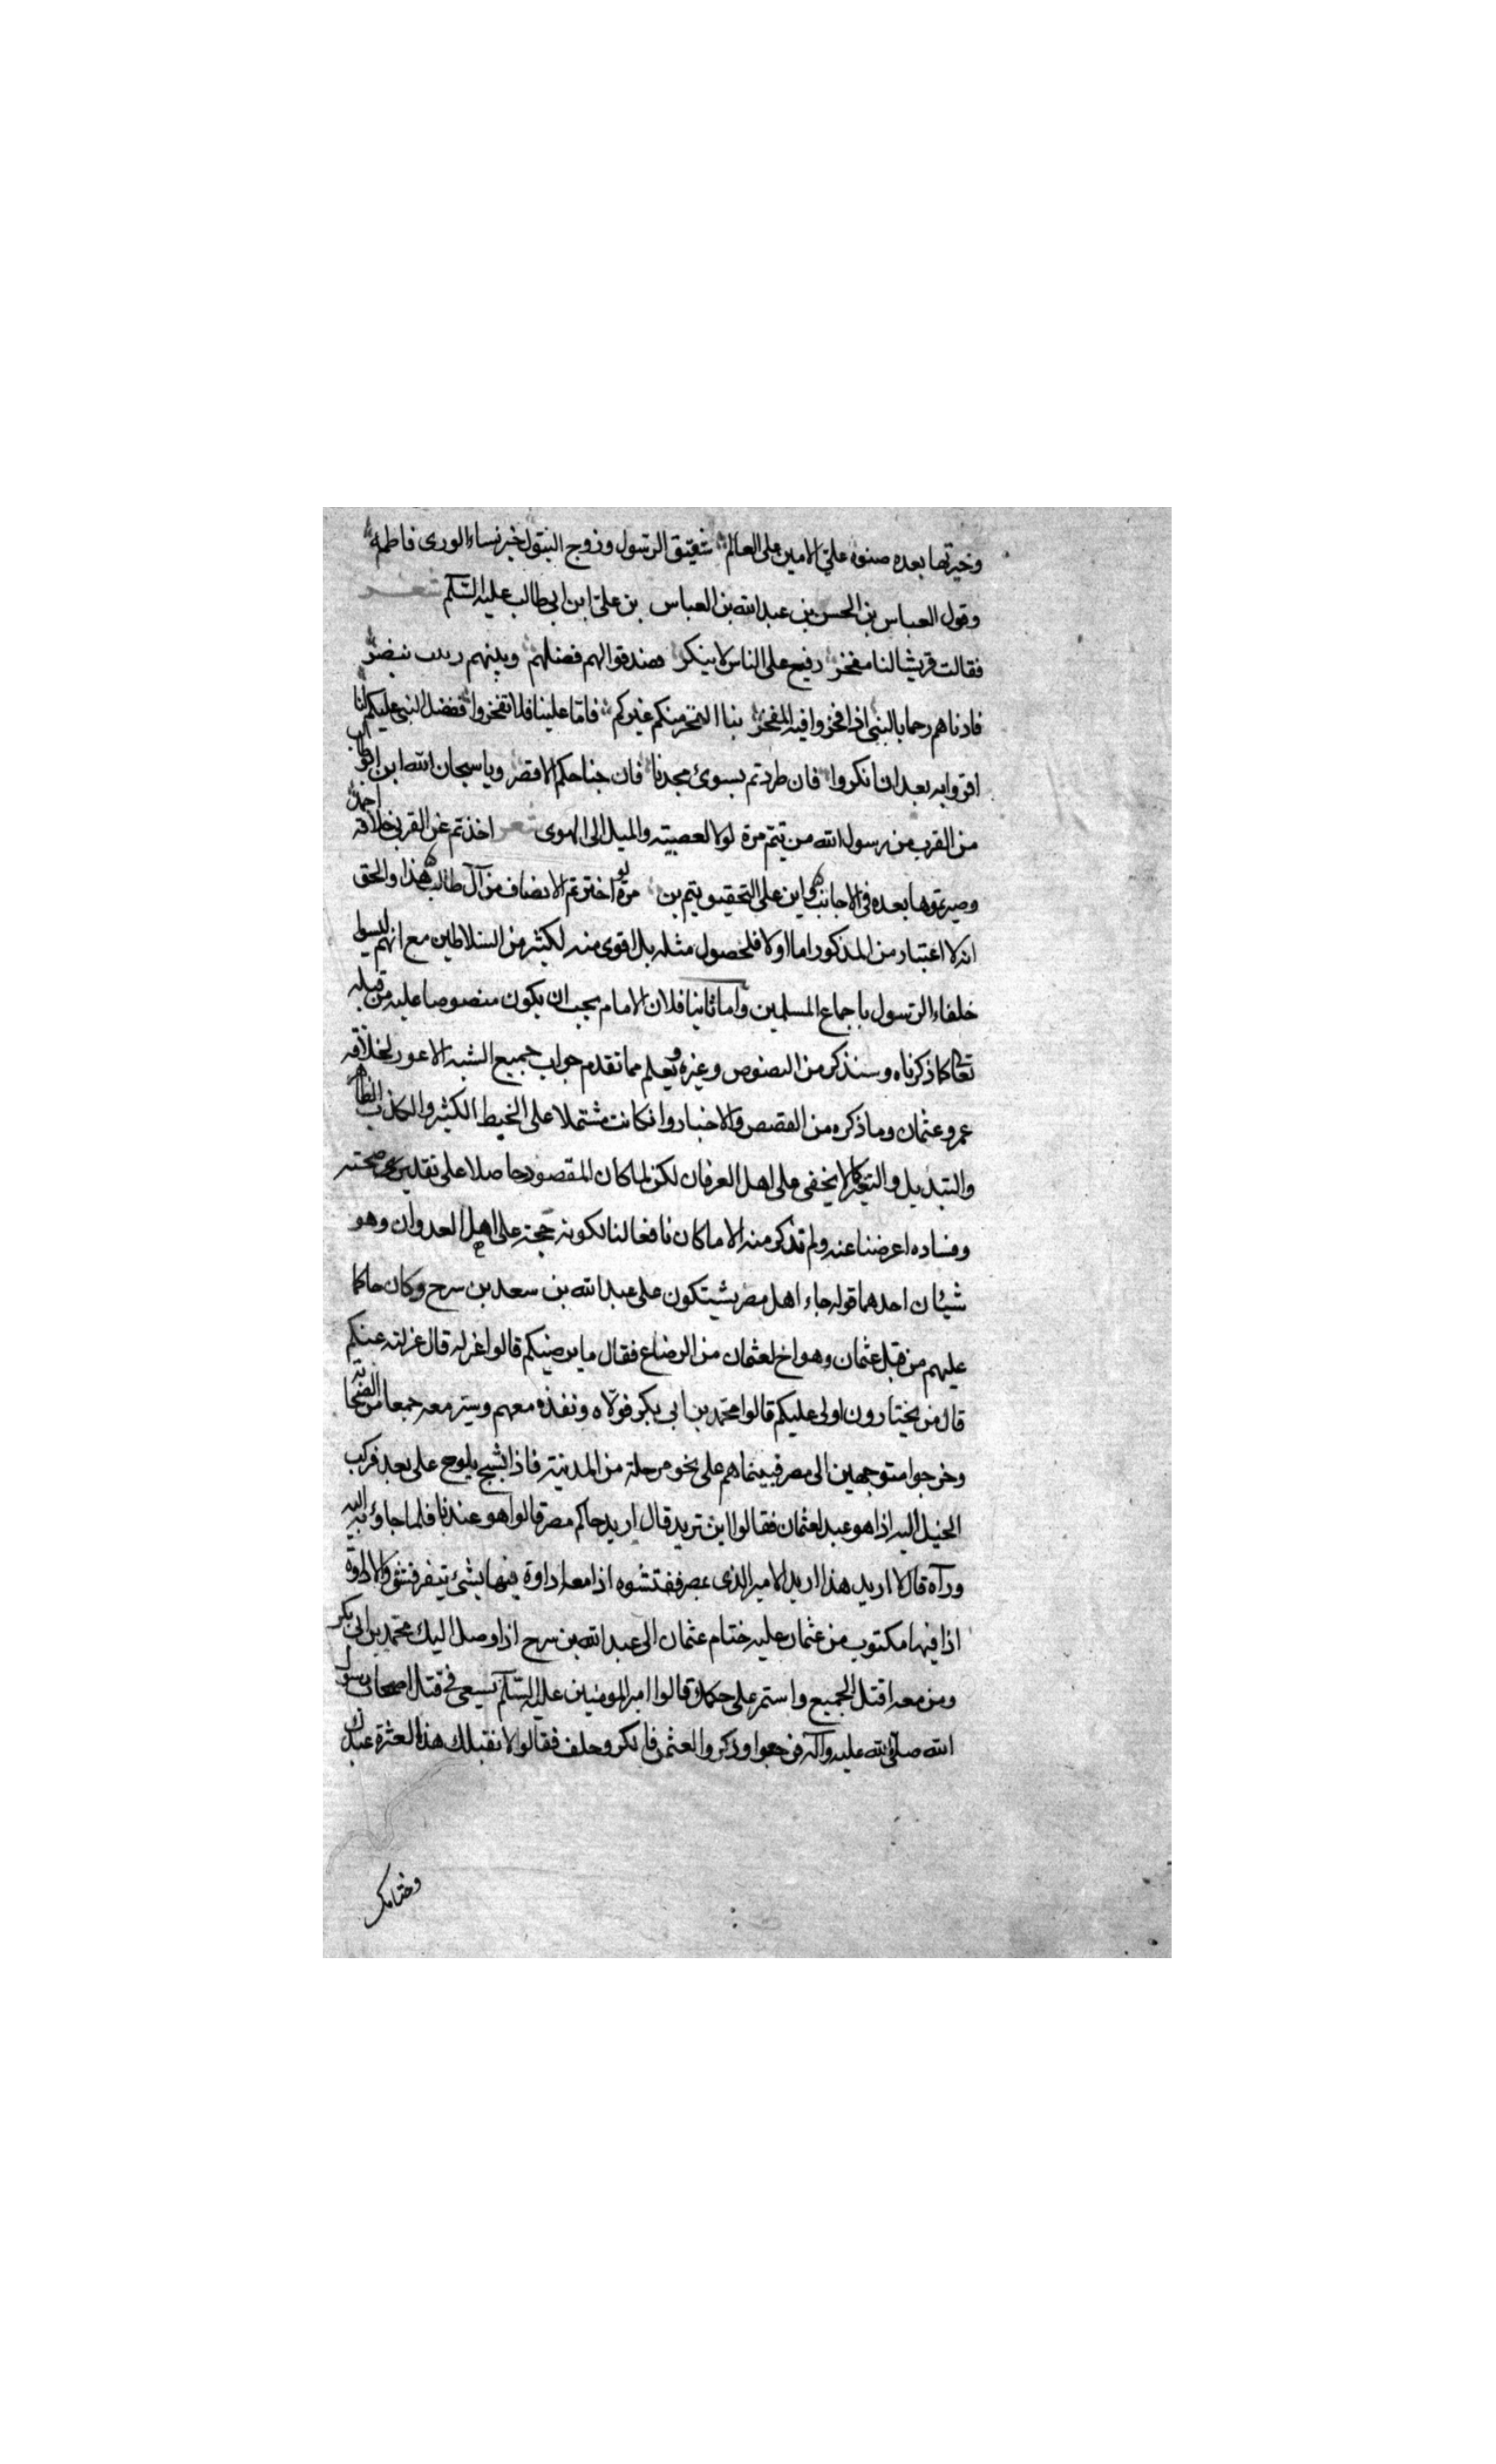 وخيرتها بعده صنوه علي الامين على العالم شقيق الرسول وزوج البتول خير نساء الورى فاطمه
وقول العباس بن الحسن بن عبد الله بن العباس بن علي ابن ابي طالب عليه السلم شعر
فقالت قريش لنا مفخر رفيع على الناس لا ينكر فصدقوا لهم فضلهم وبينهم
فادناهم رحما بالنبي اذا فخروا فيه المفخر بنا الفخر منكم غيركم فاما علينا فلا تفخروا ففضل النبي عليكم لنا
اقروا به بعد ان انكروا فان طردتم بسوى مجدنا فان جناحكم الاقصر ويا سبحان الله اين ابو طالب
من القرب من رسول الله من تيم مرة لولا العصبية والميل الى الهوى شعر اخذتم عن القربى خلافة احمد
وصيرتموها بعده في الاجانب واين على التحقيق تيم بن مرة لو اخترتم الانصاف من آل طالب هذا والحق
انه لا اعتبار من المذكور اما اولا فلحصول مثله بل اقوى منه لكثير من السلاطين مع انهم ليسوا
خلفاء الرسول باجماع المسلمين واما ثانيا فلان الامام يجب ان يكون منصوصا عليه من قبله
تعالى كما ذكرناه وسنذكر من النصوص وغيره ويعلم مما تقدم جواب جميع الشبه الاعور لخلافة
عمر وعثمان وما ذكره من القصص والاخبار وان كانت مشتملا على الخبط الكثير والكذب الظاهر
والتبديل والتغير كما لا يخفى على اهل العرفان لكن لما كان المقصود حاصلا على تقديري صحته
وفساده اعرضنا عنه ولم نذكر منه الا ما كان نافعا لنا لكونه حجة على اهل العدوان وهو
شيئان احدهما قوله جاء اهل مصر يشتكون على عبد الله بن سعد بن سرح وكان حاكما
عليهم من قبل عثمان وهو اخ لعثمان من الرضاع فقال ما يرضيكم قالوا عزله قال عزلته عنكم
قال من يختارون اولى عليكم قالوا محمد بن ابي بكر فولاه ونفذه معهم وسير معه جمعا من الصحابة
وخرجوا متوجهين الى مصر فبينما هم على نحو مرحلة من المدينة فاذا بشبح يلوح على بعد فركب
الخيل اليه اذا هو عبد لعثمان فقالوا اين تريد قال اريد حاكم مصر قالوا هو عندنا فلما جاؤ به اليه
ورآه قال لا اريد هذا اريد الامير الذي بمصر ففتشوه اذا معه اداوة فيها شئ الاداوة
اذا فيها مكتوب من عثمان عليه ختام عثمان الى عبد الله بن سرح اذا وصل اليك محمد بن ابي بكر
ومن معه اقتل الجميع واستمر على حكمك قالوا امير المومنين عليه السلم يسعى في قتل اصحاب رسول
الله صلى الله عليه وآله فرجعوا وذكروا لعثمن فانكر وحلف فقالوا لا نقبل لك هذه العثرة عبدك
وختامك